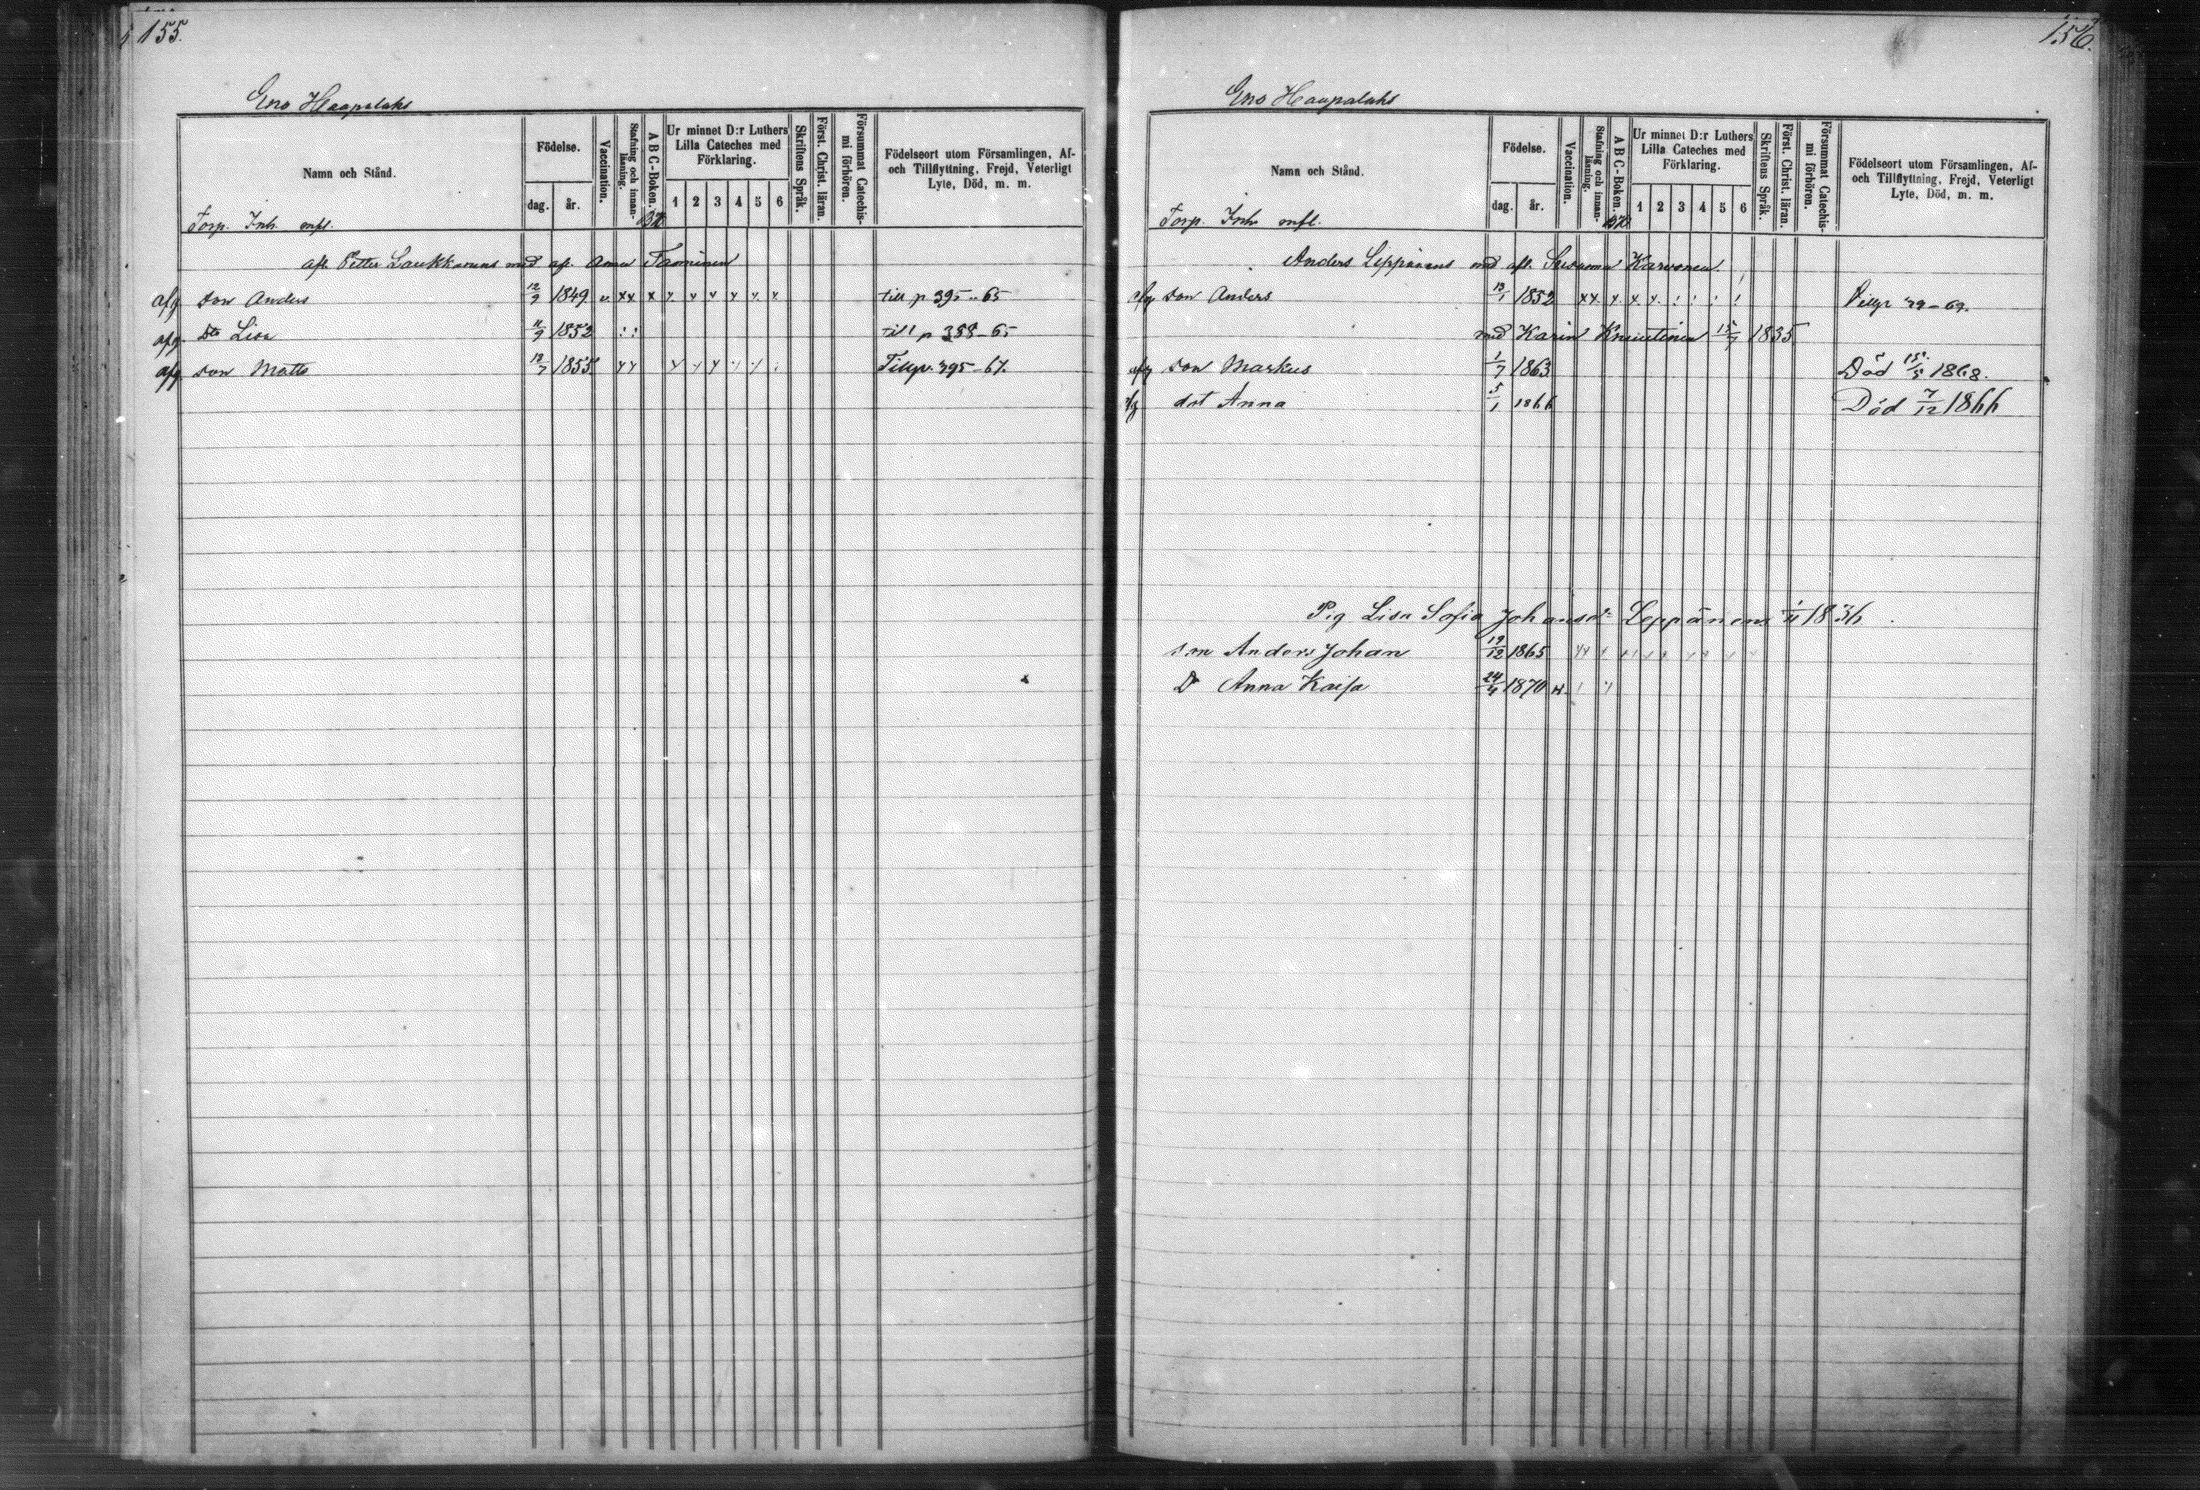 155.
Eno Haapalaks
Namn och Stånd.
Födelse.
dag.
år.
Vaccination.
Stafning och innan-läsning.
A B C-Boken.
Ur minnet D:r Luthers Lilla Cateches med Förklaring.
1 2 3 4 5 6
Skriftens Språk.
Först. Christ. läran.
Försummat Catechis-mi förhören.
Födelseort utom Församlingen, Af- och Tillflyttning, Frejd, Veterligt Lyte, Död, m. m.
Torp. Inh. mfl.
afl. Petter Laukkanens med af. Anna Tarninen
afg son Anders 12/9 1849 v xx x x x x x x x till p 395 - 65
afg. Dtr Lisa 11/9 1852 : : till p 388 - 65
afg son Matts 18/7 1855 xx Tillp. 395 - 67.
156.
Eno Haapalaks
Namn och Stånd.
Födelse.
dag.
år.
Vaccination.
Stafning och innan-läsning.
A B C-Boken.
Ur minnet D:r Luthers Lilla Cateches med Förklaring.
1 2 3 4 5 6
Skriftens Språk.
Först. Christ. läran.
Försummat Catechis-mi förhören.
Födelseort utom Församlingen, Af- och Tillflyttning, Frejd, Veterligt Lyte, Död, m. m.
Torp. Inh mfl.
Anders Leppänens med afl. Susanna Karvonen
afg son Anders 13/1 1852 xx x x x
med Karin 15/7 1835
afg son Markus 1/7 1863 Död 15/5 1868.
afg dot Anna 5/1 1866 Död 7/12 1866
Pig Lisa Sofia Johansdr Leppänens 1/11 1836
son Anders Johan 19/12 1865
D Anna Kaisa 24/4 1870